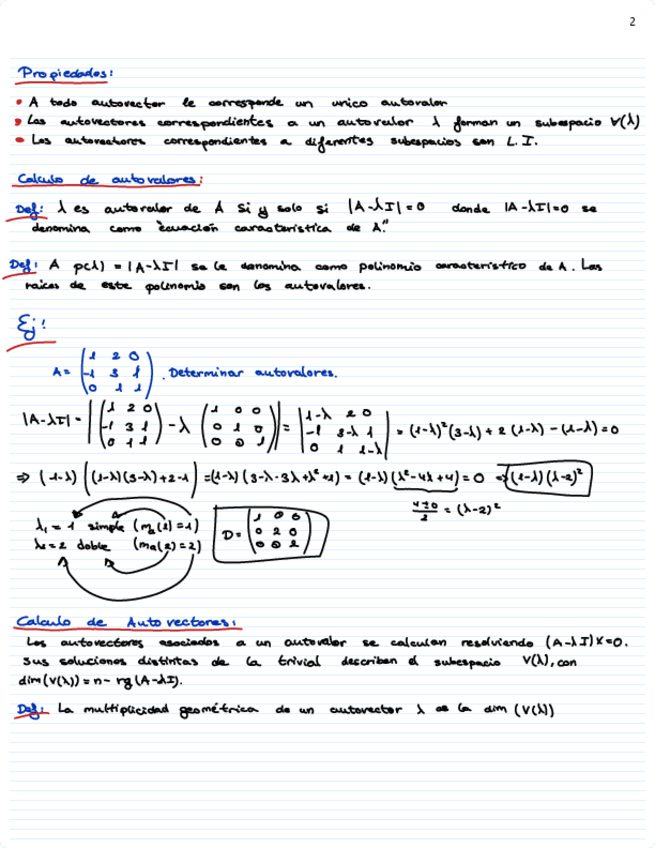 2
Propiedades:
• A todo autovector le corresponde un unico autovalor
• Los autovectores correspondientes a un autovalor λ forman un subespacio V(λ)
• Los autovectores correspondientes a diferentes subespacios son L.I.
Calculo de autovalores:
Def: λ es autovalor de A si y solo si |A-λI|=0 donde |A-λI|=0 se
denomina como "ecuación característica de A."
Def: A p(λ) = |A-λI| se le denomina como polinomio caracteristico de A. Las
raices de este polinomio son los autovalores.
Ej:
A= (1 2 0
-1 3 1
0 1 1). Determinar autovalores.
|A-λI| = |(1 2 0
-1 3 1
0 1 1) - λ (1 0 0
0 1 0
0 0 1)| = |1-λ 2 0
-1 3-λ 1
0 1 1-λ| = (1-λ)²(3-λ) + 2(1-λ) - (1-λ) = 0
⇒ (1-λ) ((1-λ)(3-λ)+2-1) = (1-λ)(3-λ-3λ+λ²+1) = (1-λ)(λ²-4λ+4) = 0 ⇒ (1-λ)(λ-2)²
4±0/2 = (λ-2)²
λ₁ = 1 simple (ma(1)=1)
λ₂ = 2 doble (ma(2)=2)
D= (1 0 0
0 2 0
0 0 2)
Calculo de Autovectores:
Los autovectores asociados a un autovalor se calculan resolviendo (A-λI)X=0.
Sus soluciones distintas de la trivial describen el subespacio V(λ), con
dim(V(λ)) = n- rg(A-λI).
Def: La multiplicidad geométrica de un autovector λ es la dim (V(λ))